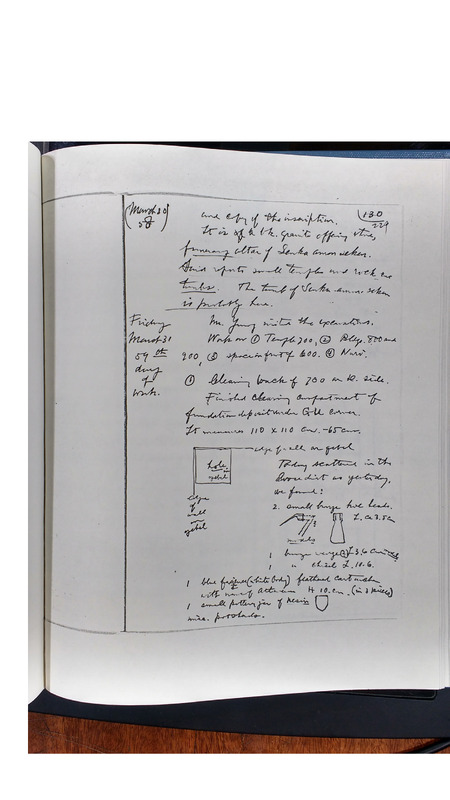 (March 30) 58
130
229
and copy of the inscription.
It is of a bk. granite offering stone,
funerary altar of Senka-amon-seken.
David reports small temples and rock cut
tombs. The tomb of Senka-amon-seken
is probably here.
Friday
March 31
59th
day
of
work.
Mr. Jung visits the excavations.
Work on ① Temple 700, ② Bldg. 800 and
900, ③ space in front of 600. ④ Nuri.
① Clearing back of 700 on E. side.
Finished clearing compartment of
foundation deposit under corner.
It measures 110 x 110 cm. -65 cm.
edge of wall on gebel
hole in gebel
edge of wall on gebel
Today scattered in the
loose dirt as yesterday,
we found:
2 small bronze hoe heads.
L. ca 3.5 cm
models
1 bronze L. 3.6 cm
1 " chisel L. 10.6.
1 blue faience (white body) flattened cartouche
with name of H. 10 cm. (in 2 pieces)
1 small pottery jar of resin
misc. potsherds.